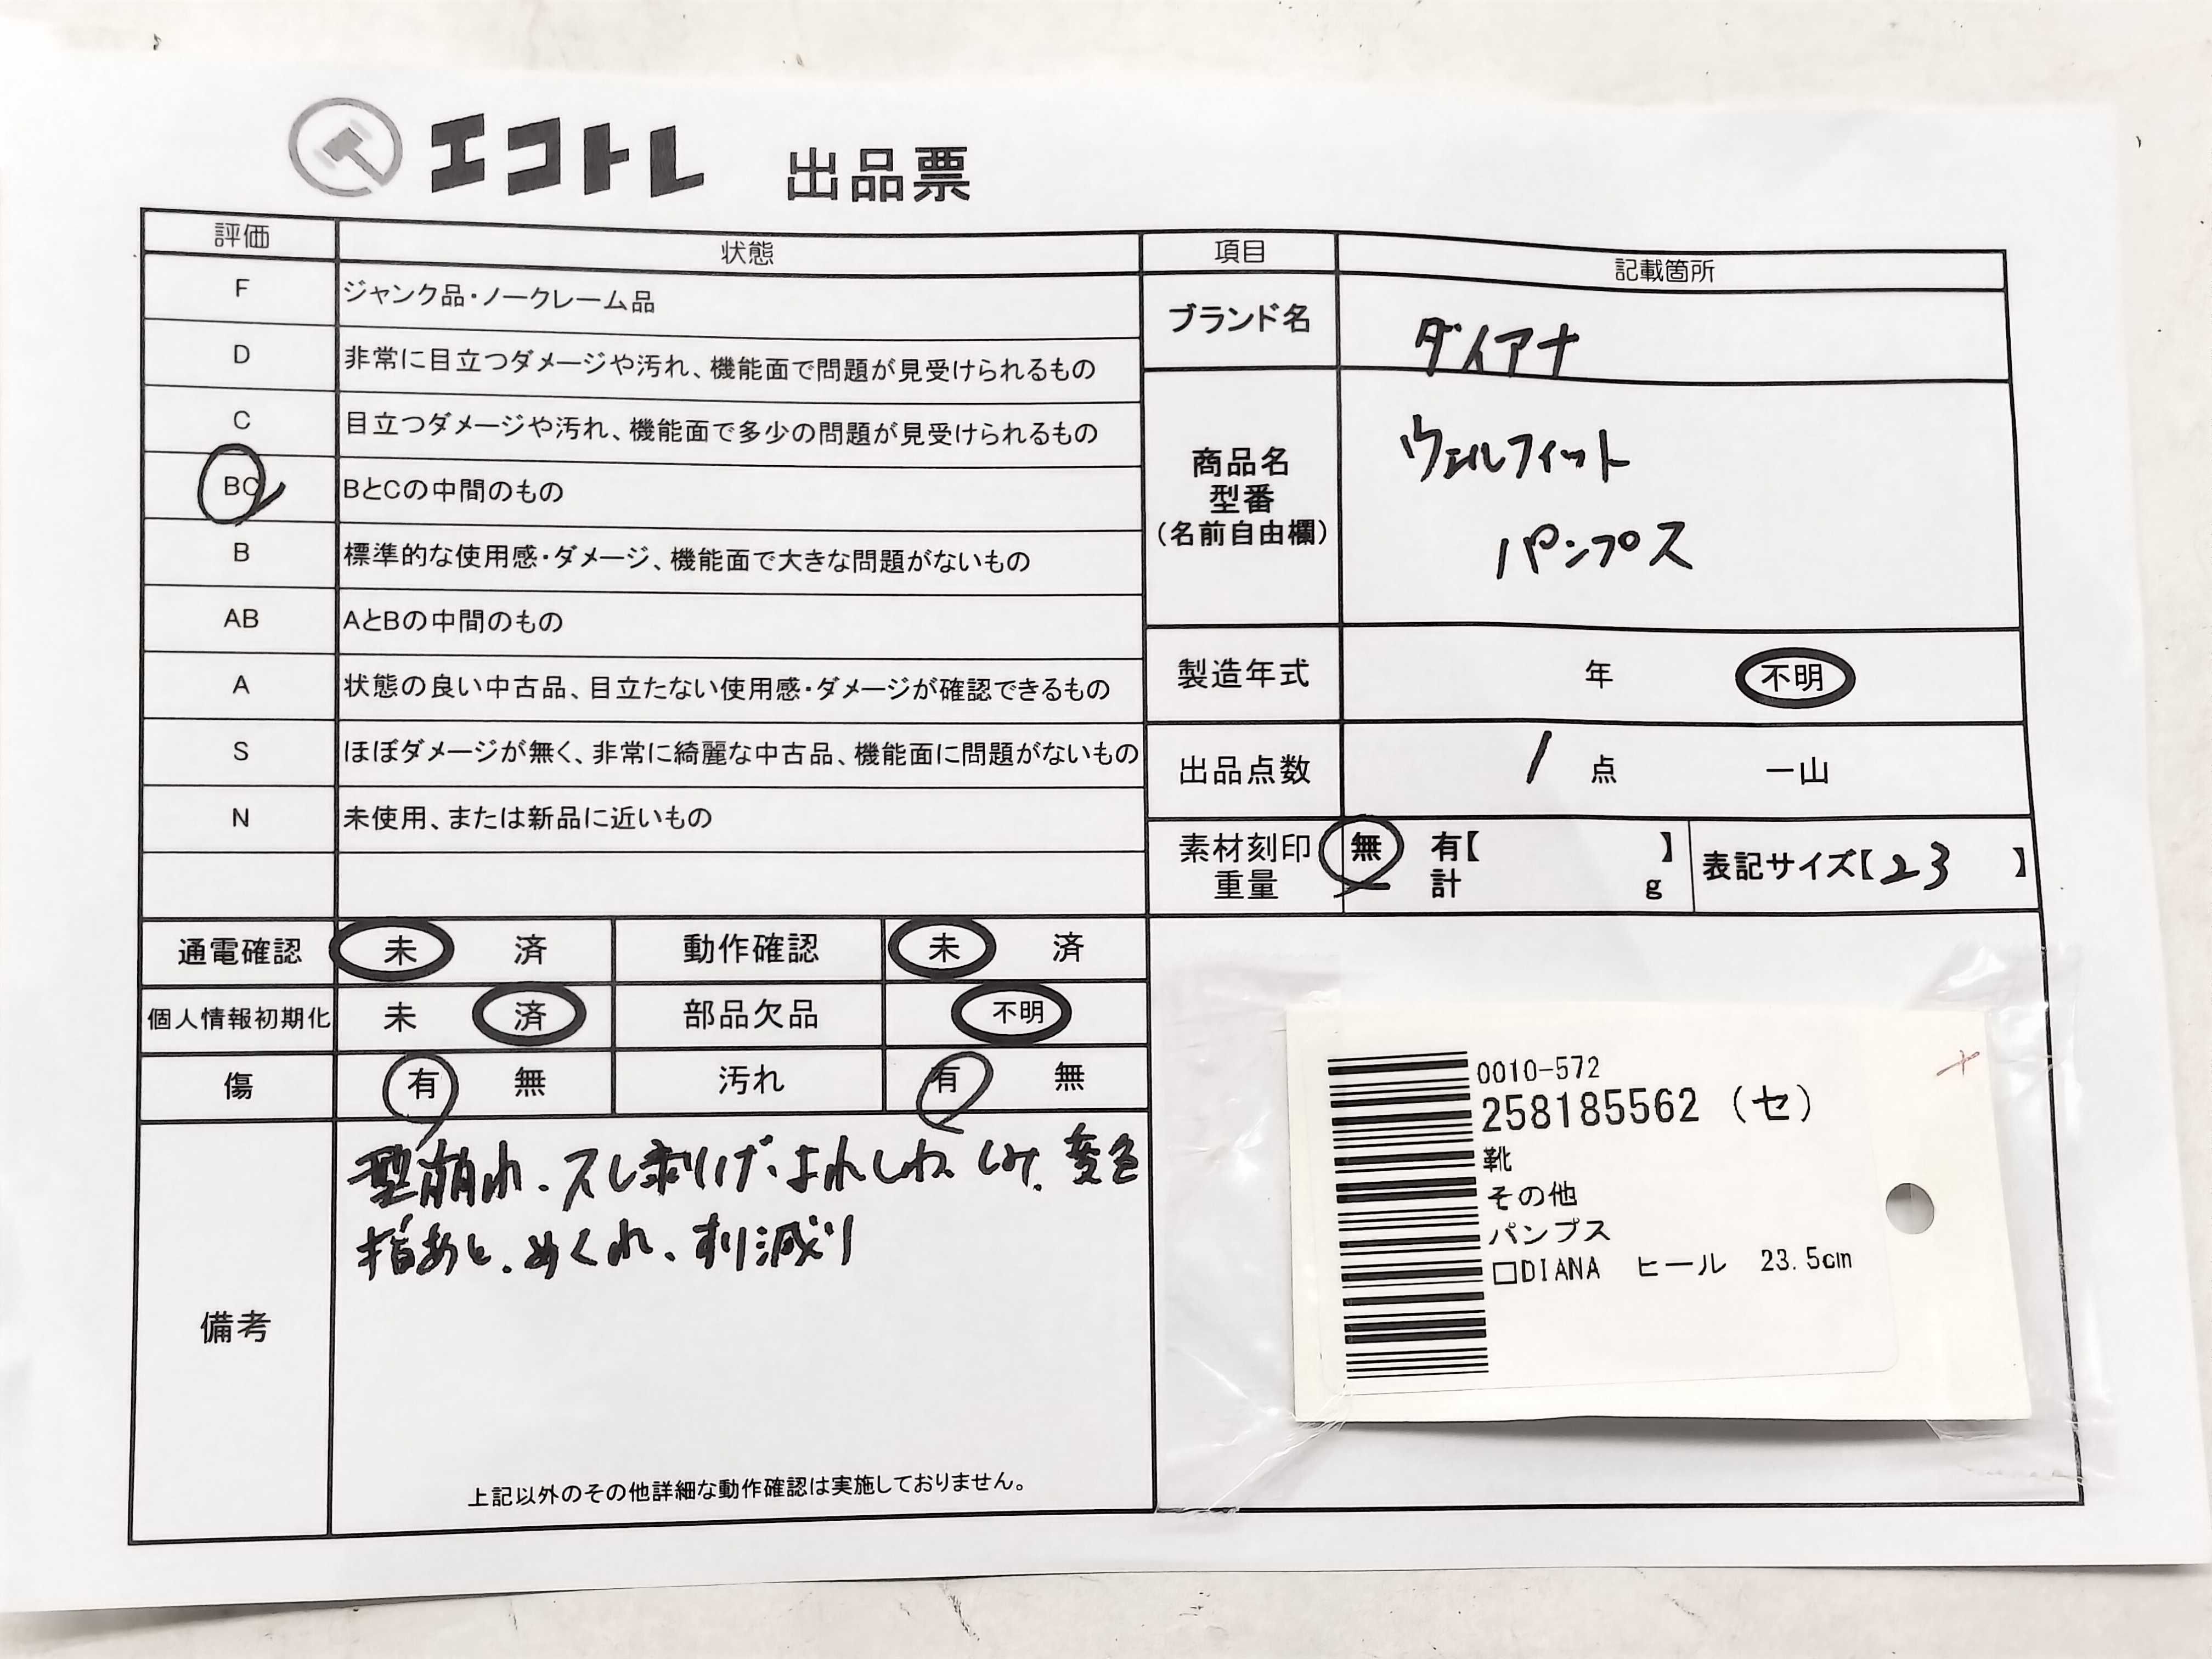 エコトレ 出品票
評価 状態
F ジャンク品・ノークレーム品
D 非常に目立つダメージや汚れ、機能面で問題が見受けられるもの
C 目立つダメージや汚れ、機能面で多少の問題が見受けられるもの
BC BとCの中間のもの
B 標準的な使用感・ダメージ、機能面で大きな問題がないもの
AB AとBの中間のもの
A 状態の良い中古品、目立たない使用感・ダメージが確認できるもの
S ほぼダメージが無く、非常に綺麗な中古品、機能面に問題がないもの
N 未使用、または新品に近いもの
項目 記載箇所
ブランド名 ダイアナ
商品名
型番
(名前自由欄)
ウェルフィット
パンプス
製造年式 年 不明
出品点数 1 点 一山
素材刻印 無 有【 】
重量 計 g
表記サイズ【23 】
通電確認 未 済 動作確認 未 済
個人情報初期化 未 済 部品欠品 不明
傷 有 無 汚れ 有 無
備考
型崩れ、スレ剥げ、よれしわ、しみ、変色
指あと、めくれ、すり減り
上記以外のその他詳細な動作確認は実施しておりません。
0010-572
258185562 (セ)
靴
その他
パンプス
□DIANA ヒール 23.5cm